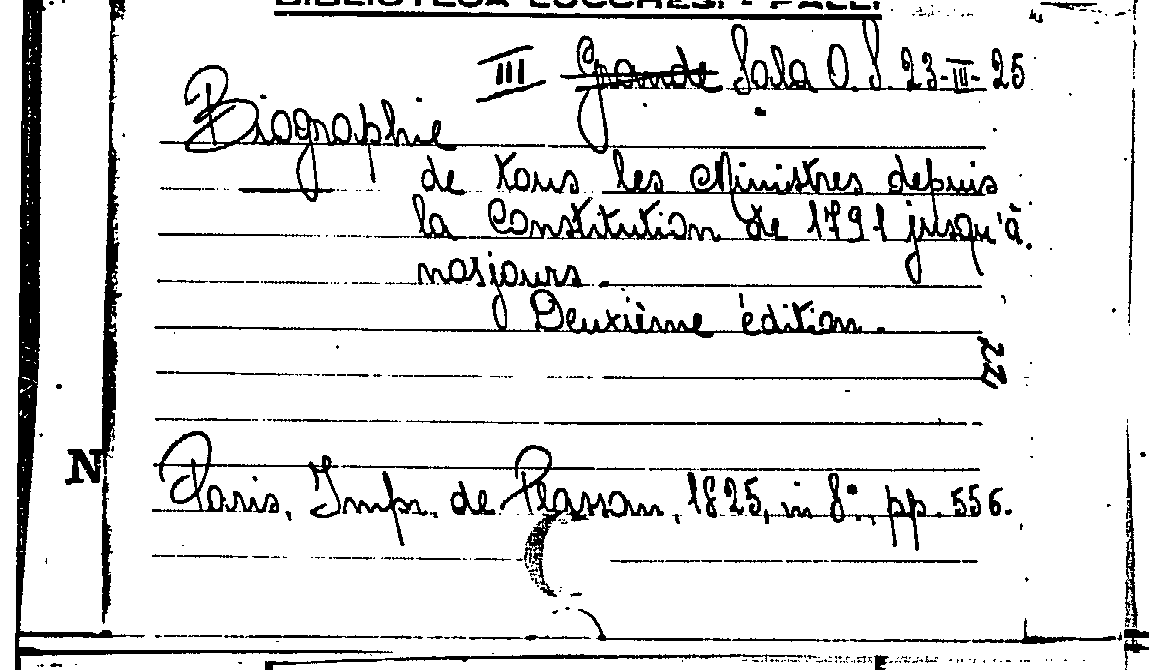 BIBLIOTECA LUCCHESI - PALLI
III Grande Sala O. S. 23-III-25
Biographie
de tous les Ministres depuis
la Constitution de 1791 jusqu'à
nosjours.
Deuxième édition.
22
N
Paris, Impr. de Plassan, 1825, in 8°, pp. 556.